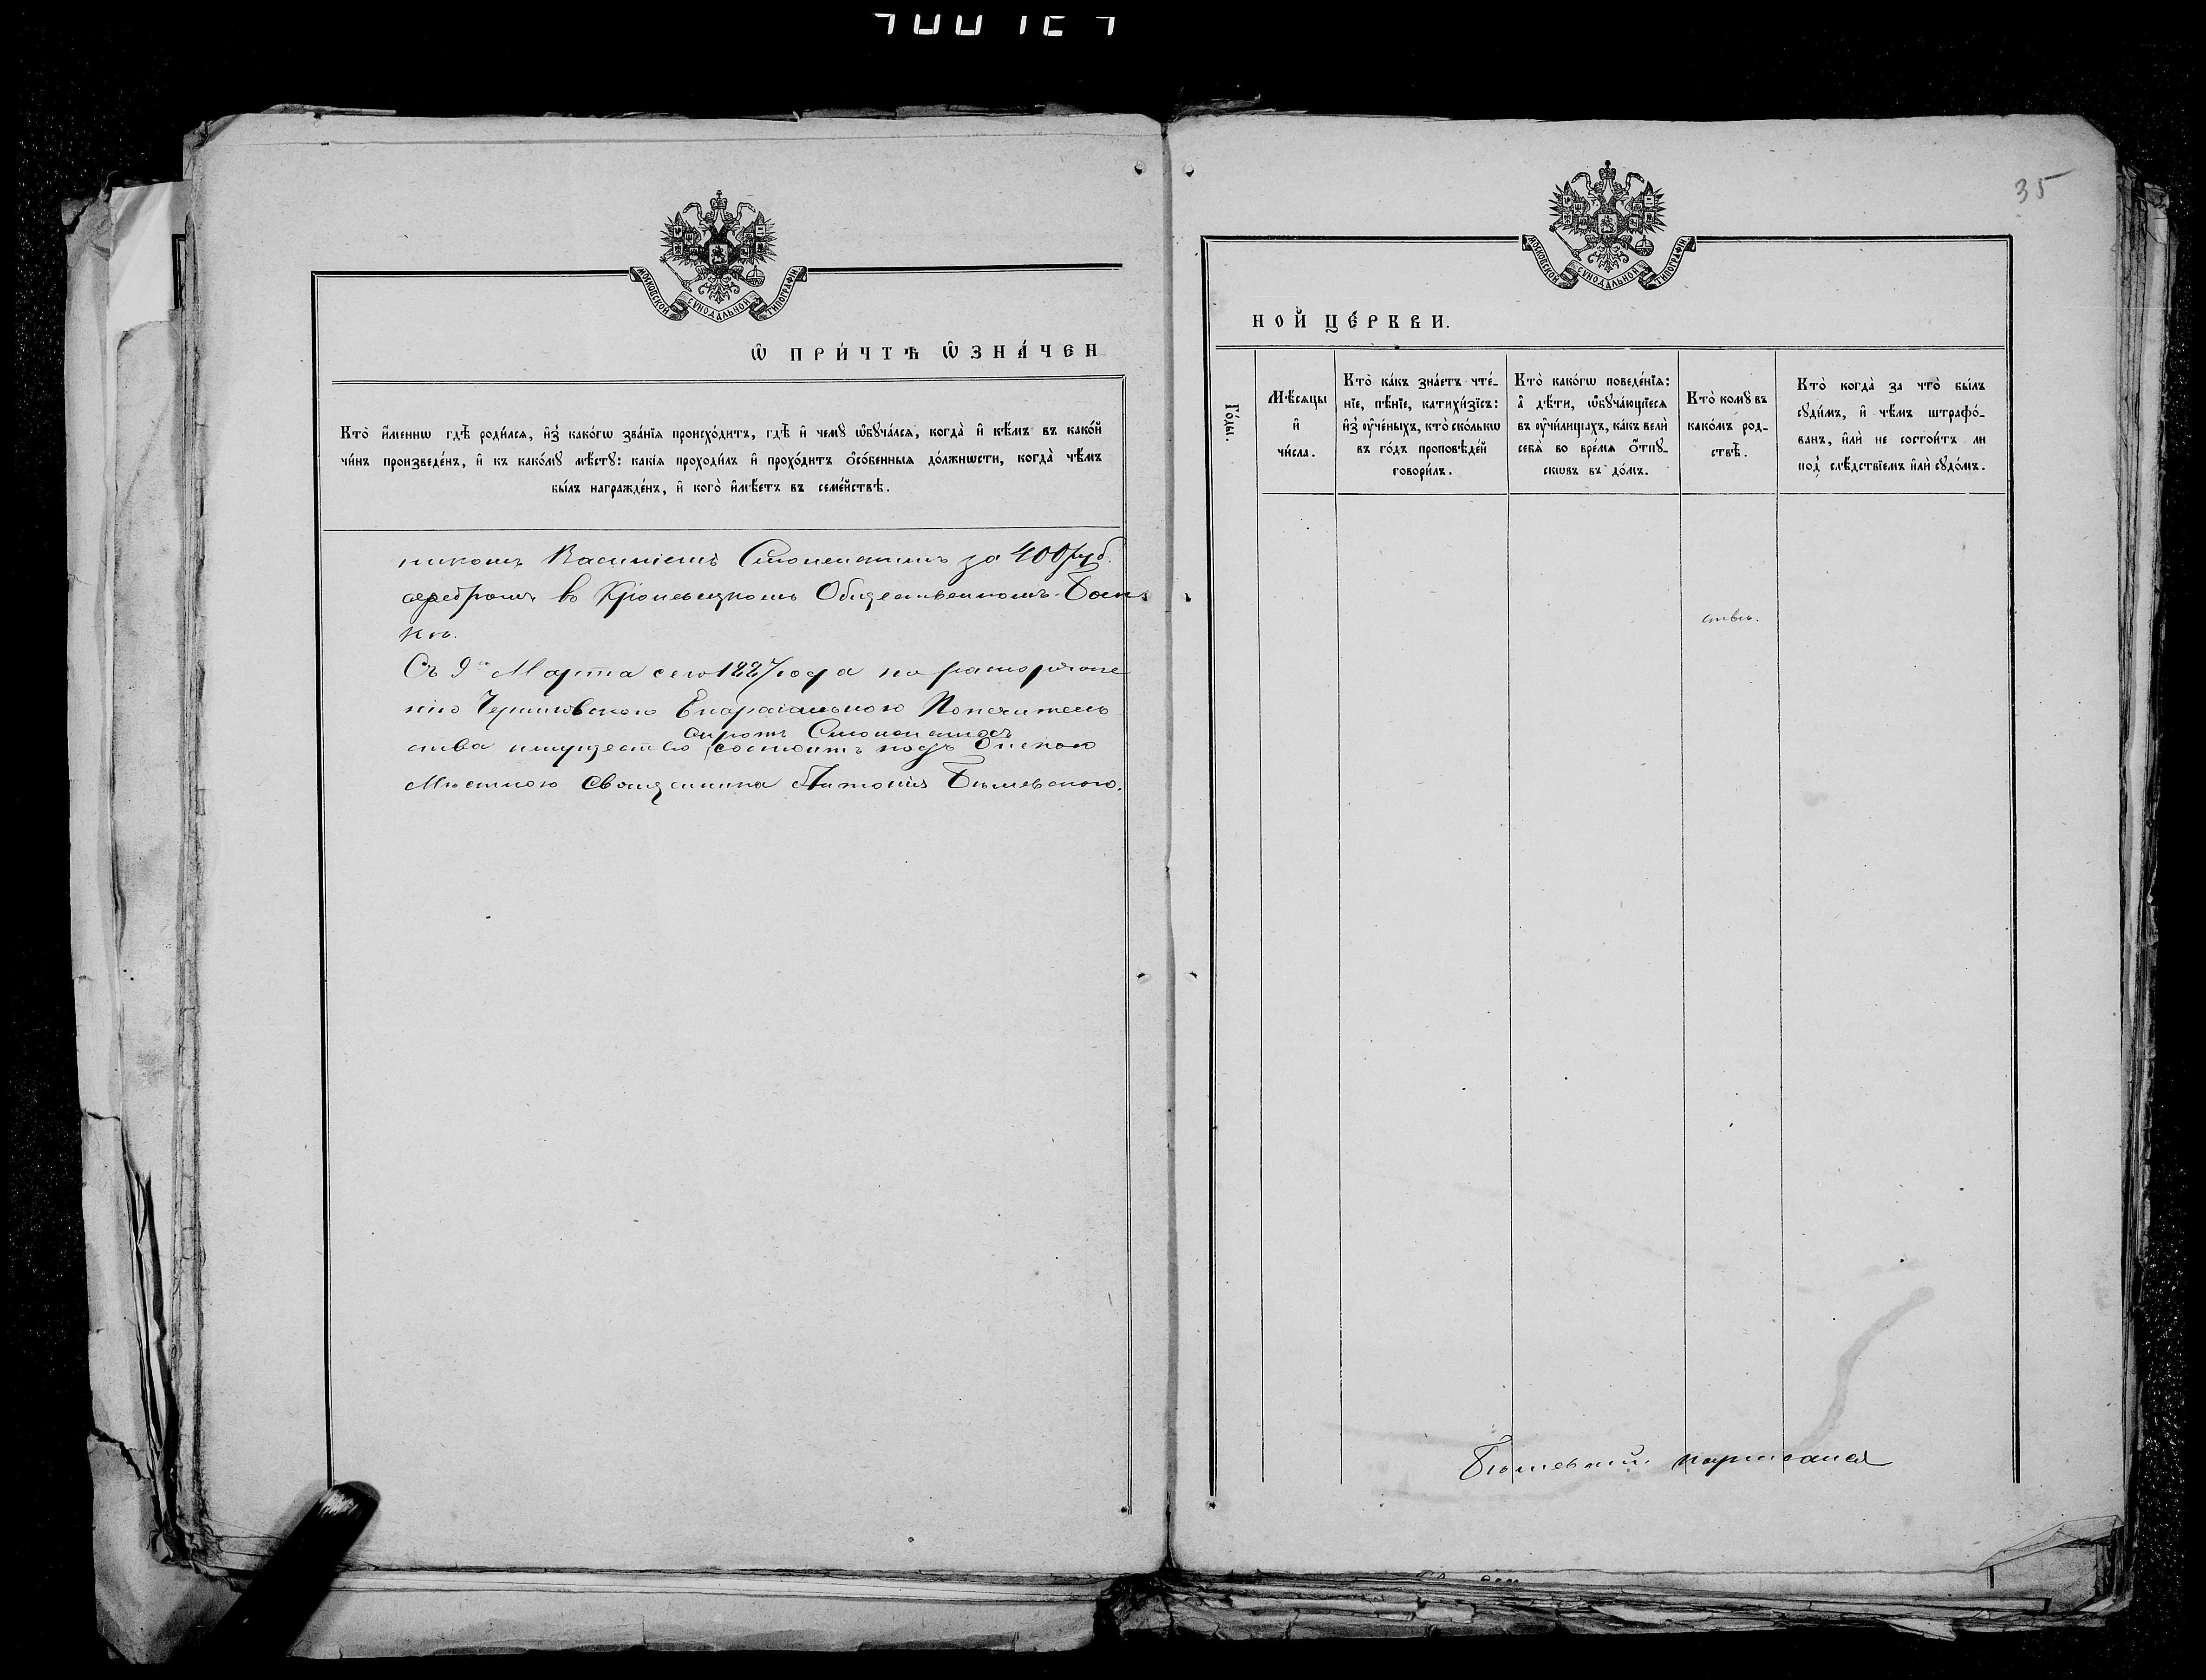 МОСКОВСКОЙ СУНОДАЛЬНОЙ ТИПОГРАФІИ
Ѡ ПРИ́ЧТѢ Ѡ҆ЗНА́ЧЕН
Кто̀ и҆́меннѡ гдѣ̀ роди́лсѧ, и҆з̾ како́гѡ зва́нїѧ происхо́дитъ, гдѣ̀ и҆ чемꙋ̀ ѡ҆бꙋча́лсѧ, когда̀ и҆ кѣ́мъ въ како́й
чи́нъ произведе́нъ, и҆ къ како́мꙋ мѣ́стꙋ: какі́ѧ проходи́лъ и҆ прохо́дитъ ѻ҆со́бенныѧ до́лжнѡсти, когда̀ чѣ́мъ
бы́лъ награжде́нъ, и҆ кого̀ и҆мѣ́етъ въ семе́йствѣ.
никомъ Василіемъ Смоленскимъ за 400 руб.
серебромъ въ Кролевецкомъ Общественномъ Бан-
кѣ.
Съ 9го Марта сего 1887 года по распоряже
нію Черниговского Епархіального Попечитель
сиротъ Смоленскихъ
ства имущество состоитъ подъ Опекою
Мѣстного Священника Антонія Бѣлевского.
35
МОСКОВСКОЙ СУНОДАЛЬНОЙ ТИПОГРАФІИ
НОЙ ЦЕ́РКВИ.
Го́ды.
Мѣ́сѧцы
и҆
чи́сла.
Кто̀ ка́къ зна́етъ чте́-
нїе, пѣ́нїе, катихи́зїсъ:
и҆з̾ ᲂу҆че́ныхъ, кто̀ ско́лькѡ
въ го́дъ проповѣ́дей
говори́лъ.
Кто̀ како́гѡ поведе́нїѧ:
а҆ дѣ́ти, ѡ҆бꙋча́ющїесѧ
въ ᲂу҆чи́лищахъ, ка́къ велѝ
себѧ̀ во вре́мѧ ѻ҆́тпꙋ-
скѡвъ въ до́мъ.
Кто̀ комꙋ̀ въ
како́мъ род-
ствѣ̀.
Кто̀ когда̀ за что̀ бы́лъ
сꙋди́мъ, и҆ чѣ́мъ штрафо́-
ванъ, и҆лѝ не состои́тъ ли
под̾ слѣ́дствїемъ и҆лѝ сꙋдо́мъ.
ствѣ.